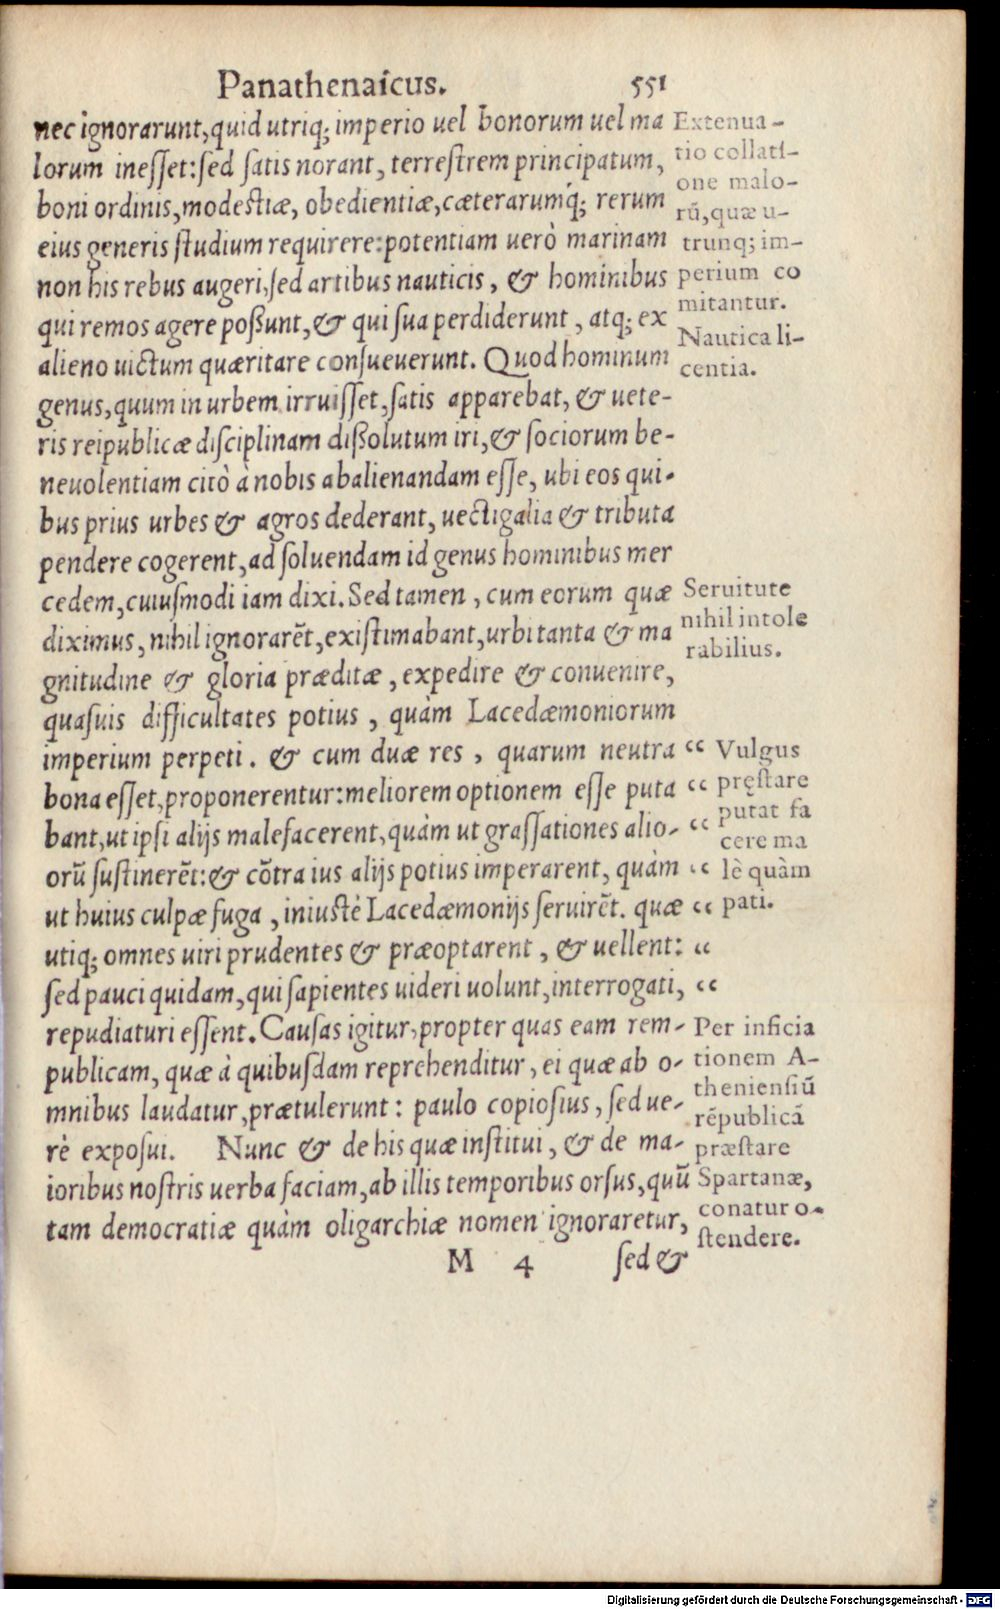 Panathenaicus. 551
nec ignorarunt, quid utriq; imperio uel bonorum uel ma
lorum inesset: sed satis norant, terrestrem principatum,
boni ordinis, modestiæ, obedientiæ, cæterarumq́; rerum
eius generis studium requirere: potentiam uerò marinam
non his rebus augeri, sed artibus nauticis, & hominibus
qui remos agere possunt, & qui sua perdiderunt, atq; ex
alieno uictum quæritare consueuerunt. Quod hominum
genus, quum in urbem irruisset, satis apparebat, & uete-
ris reipublicæ disciplinam dissolutum iri, & sociorum be-
neuolentiam citò à nobis abalienandam esse, ubi eos qui-
bus prius urbes & agros dederant, uectigalia & tributa
pendere cogerent, ad soluendam id genus hominibus mer
cedem, cuiusmodi iam dixi. Sed tamen, cum eorum quæ
diximus, nihil ignorarēt, existimabant, urbi tanta & ma
gnitudine & gloria præditæ, expedire & conuenire,
quasuis difficultates potius, quàm Lacedæmoniorum
imperium perpeti. & cum duæ res, quarum neutra
bona esset, proponerentur: meliorem optionem esse puta
bant, ut ipsi alijs malefacerent, quàm ut grassationes alio-
orū sustinerēt: & cōtra ius alijs potius imperarent, quàm
ut huius culpæ fuga, iniustè Lacedæmonijs seruirēt. quæ
utiq; omnes uiri prudentes & præoptarent, & uellent:
sed pauci quidam, qui sapientes uideri uolunt, interrogati,
repudiaturi essent. Causas igitur, propter quas eam rem-
publicam, quæ à quibusdam reprehenditur, ei quæ ab o-
mnibus laudatur, prætulerunt: paulo copiosius, sed ue-
rè exposui. Nunc & de his quæ institui, & de ma-
ioribus nostris uerba faciam, ab illis temporibus orsus, quū
tam democratiæ quàm oligarchiæ nomen ignoraretur,
M 4 sed &
Extenua-
tio collati-
one malo-
rū, quæ u-
trunq; im-
perium co
mitantur.
Nautica li-
centia.
Seruitute
nihil intole
rabilius.
“ Vulgus
“ pręstare
putat fa
“ cere ma
“ lè quàm
“ pati.
“
“
Per inficia
tionem A-
theniensiū
rēpublicā
præstare
Spartanæ,
conatur o-
stendere.
Digitalisierung gefördert durch die Deutsche Forschungsgemeinschaft - DFG